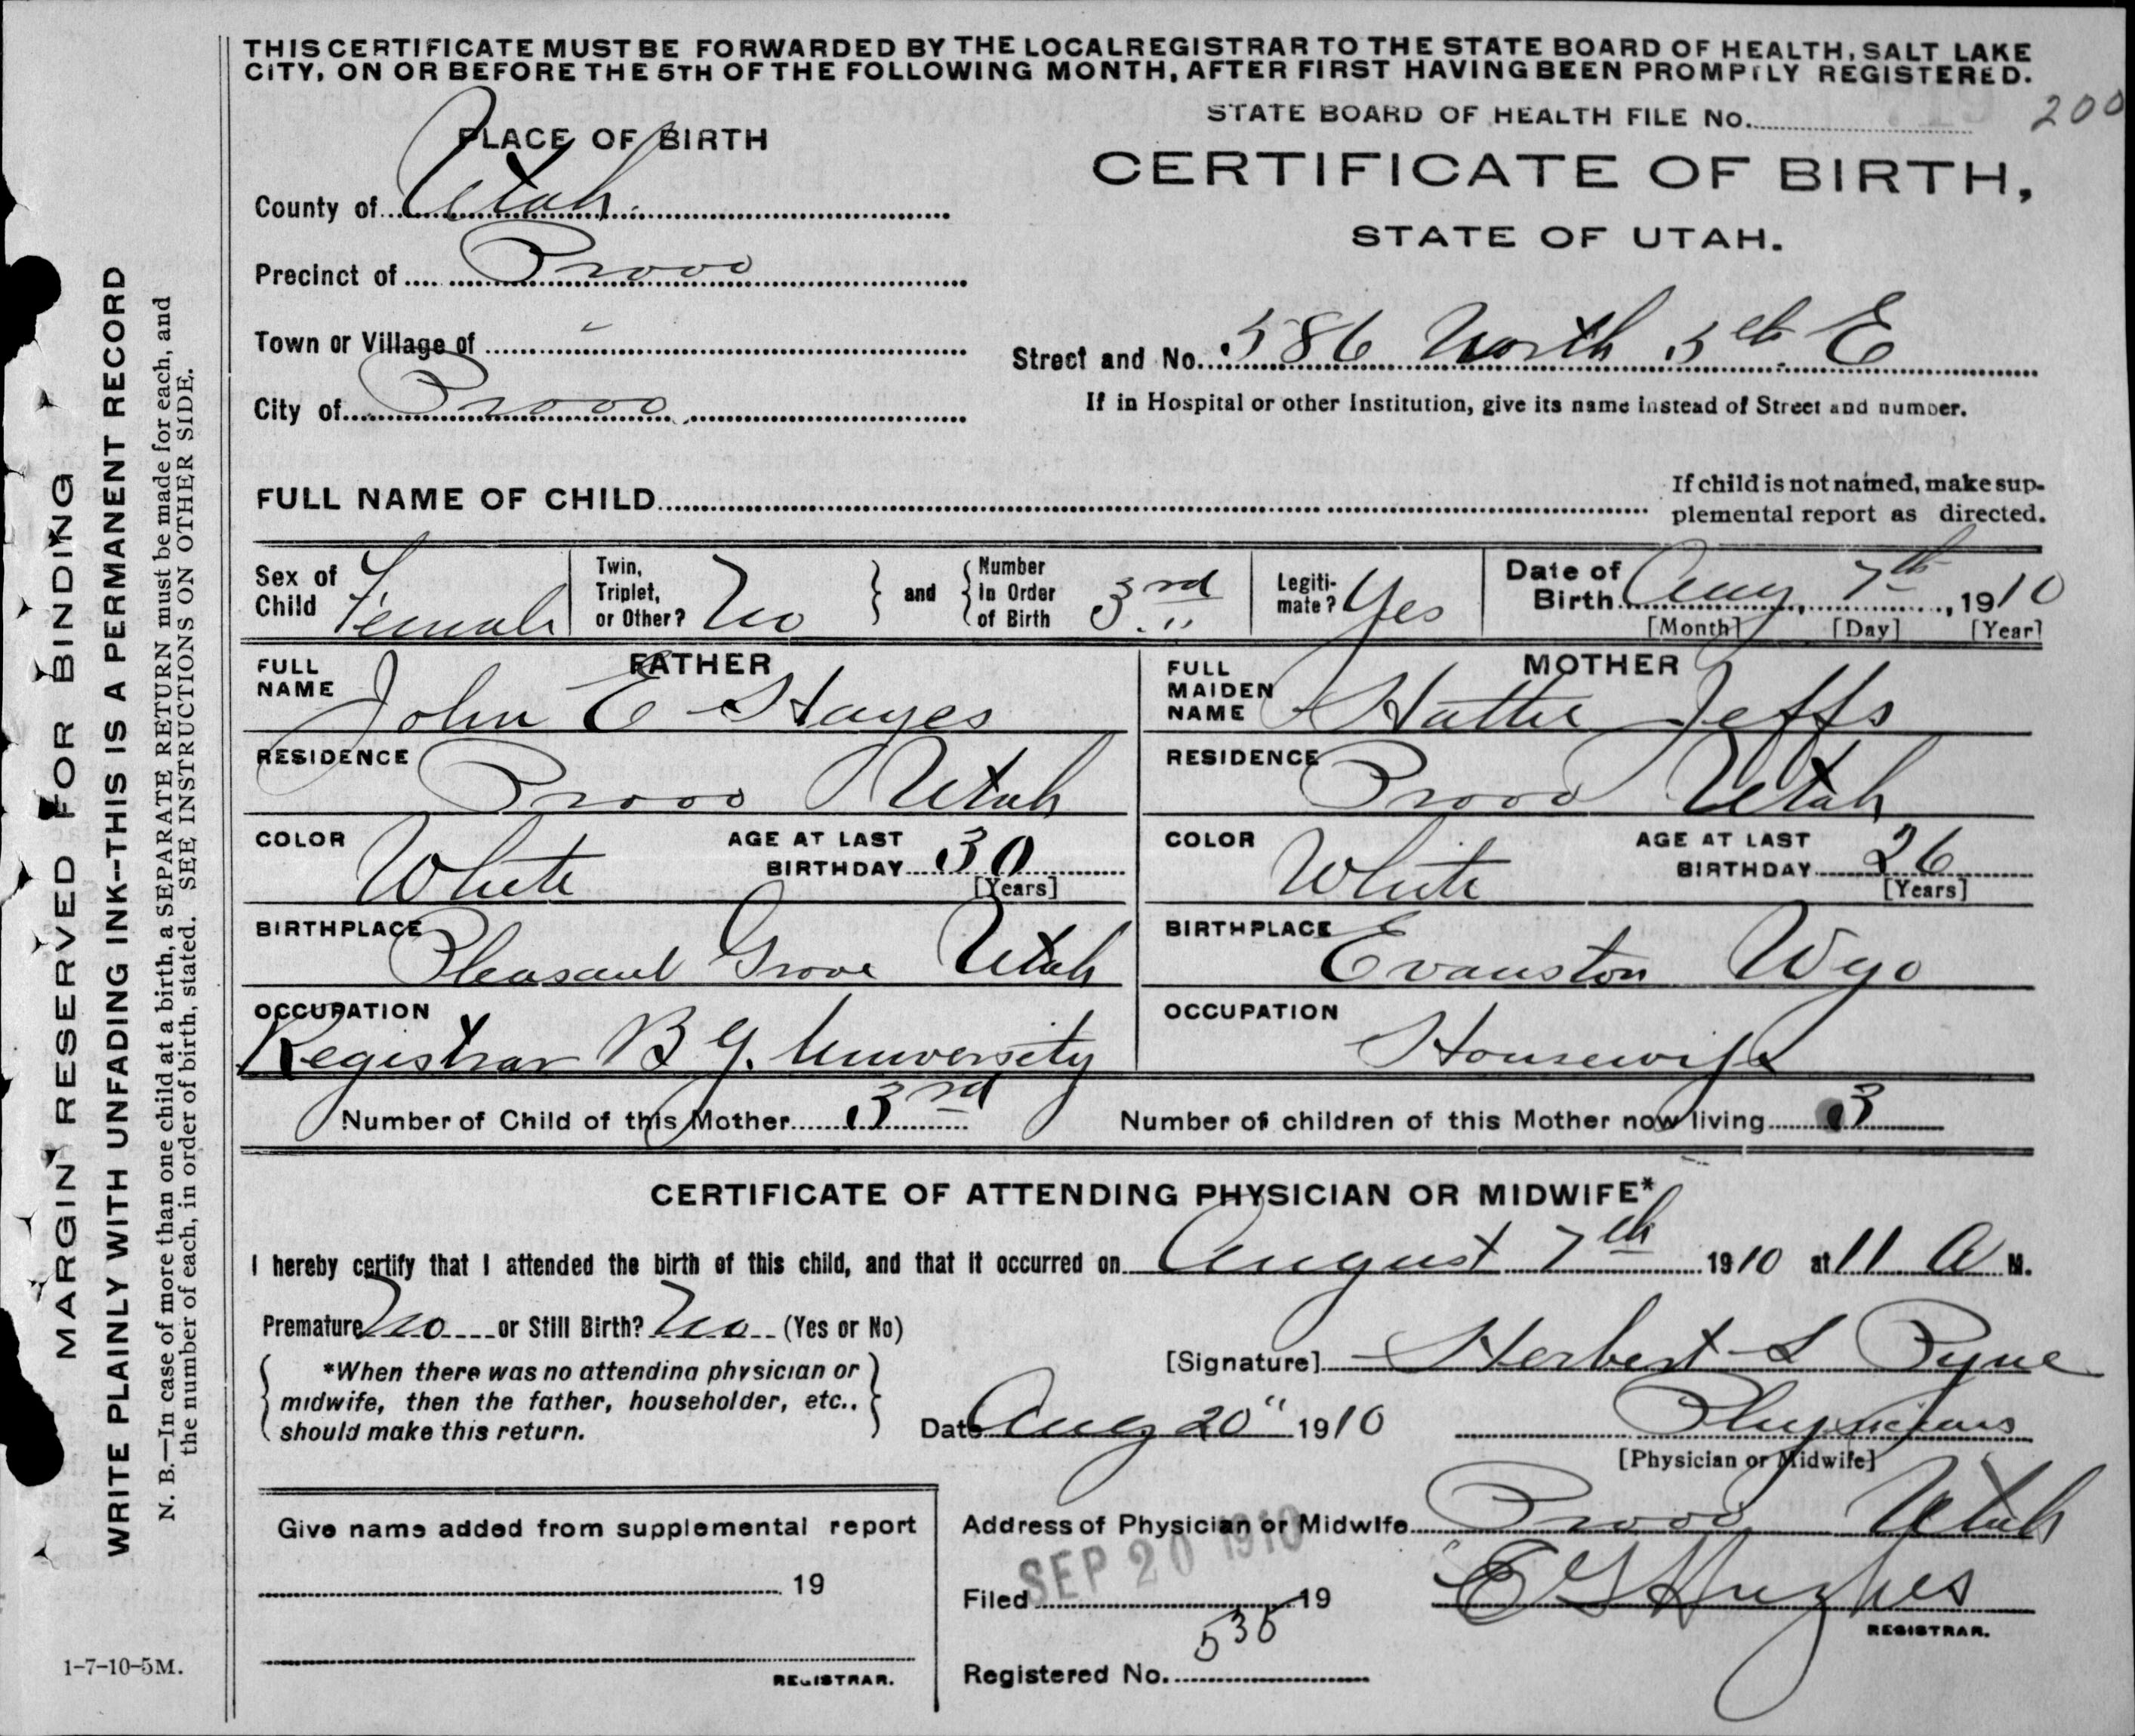 THIS CERTIFICATE MUST BE FORWARDED BY THE LOCAL REGISTRAR TO THE STATE BOARD OF HEALTH, SALT LAKE
CITY, ON OR BEFORE THE 5TH OF THE FOLLOWING MONTH, AFTER FIRST HAVING BEEN PROMPTLY REGISTERED.
STATE BOARD OF HEALTH FILE No. 200
PLACE OF BIRTH
CERTIFICATE OF BIRTH,
STATE OF UTAH.
County of Utah
Precinct of Provo
Town or Village of
Street and No. 586 North 5th E
City of Provo
If in Hospital or other Institution, give its name instead of Street and number.
FULL NAME OF CHILD
If child is not named, make sup-
plemental report as directed.
Sex of Child Female
Twin, Triplet, or Other? No
and Number in Order of Birth 3rd
Legiti-mate? Yes
Date of Birth Aug 7th, 1910
[Month] [Day] [Year]
FATHER
FULL NAME John E Hayes
MOTHER
FULL MAIDEN NAME Hattie Jeffs
RESIDENCE Provo Utah
RESIDENCE Provo Utah
COLOR White AGE AT LAST BIRTHDAY 30 [Years]
COLOR White AGE AT LAST BIRTHDAY 26 [Years]
BIRTHPLACE Pleasant Grove Utah
BIRTHPLACE Evanston Wyo
OCCUPATION Registrar B Y. University
OCCUPATION Housewife
Number of Child of this Mother 3rd Number of children of this Mother now living 3
CERTIFICATE OF ATTENDING PHYSICIAN OR MIDWIFE*
I hereby certify that I attended the birth of this child, and that it occurred on August 7th 1910 at 11 A M.
Premature No or Still Birth? No (Yes or No)
[Signature] Herbert S Pyne
*When there was no attending physician or
midwife, then the father, householder, etc.,
should make this return.
Date Aug 20" 1910
Physicians
[Physician or Midwife]
Give name added from supplemental report
19
REGISTRAR.
Address of Physician or Midwife Provo Utah
SEP 20 1910
Filed 19
E G Hughes
REGISTRAR.
535
Registered No.
MARGIN RESERVED FOR BINDING
WRITE PLAINLY WITH UNFADING INK--THIS IS A PERMANENT RECORD
N. B.—In case of more than one child at a birth, a SEPARATE RETURN must be made for each, and
the number of each, in order of birth, stated. SEE INSTRUCTIONS ON OTHER SIDE.
1-7-10-5M.